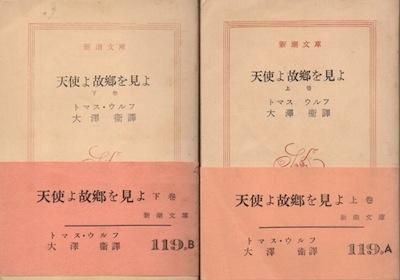 新潮文庫
天使よ故郷を見よ
下巻
トマス・ウルフ
大澤衞譯
天使よ故郷を見よ 下巻
新潮文庫
トマス・ウルフ
大澤衞譯
119.B
新潮文庫
天使よ故郷を見よ
上巻
トマス ウルフ
大澤衞譯
天使よ故郷を見よ 上巻
新潮文庫
トマス・ウルフ
大澤衞譯
119.A